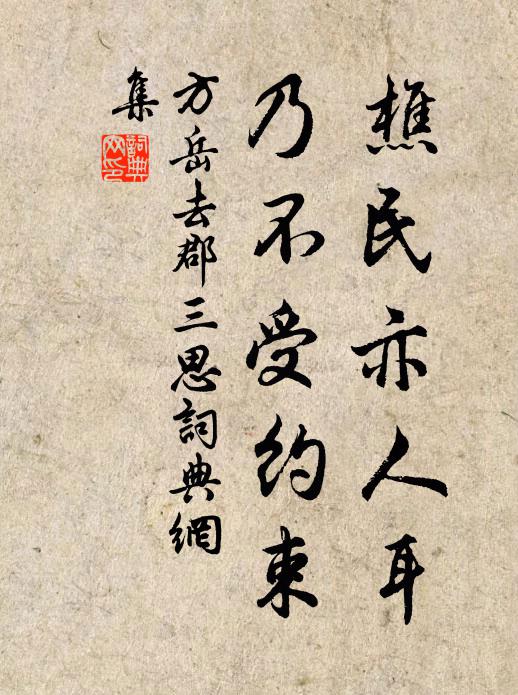 樵民亦人耳
乃不受約束
方岳去郡三思詞典網
集
詞典
网印